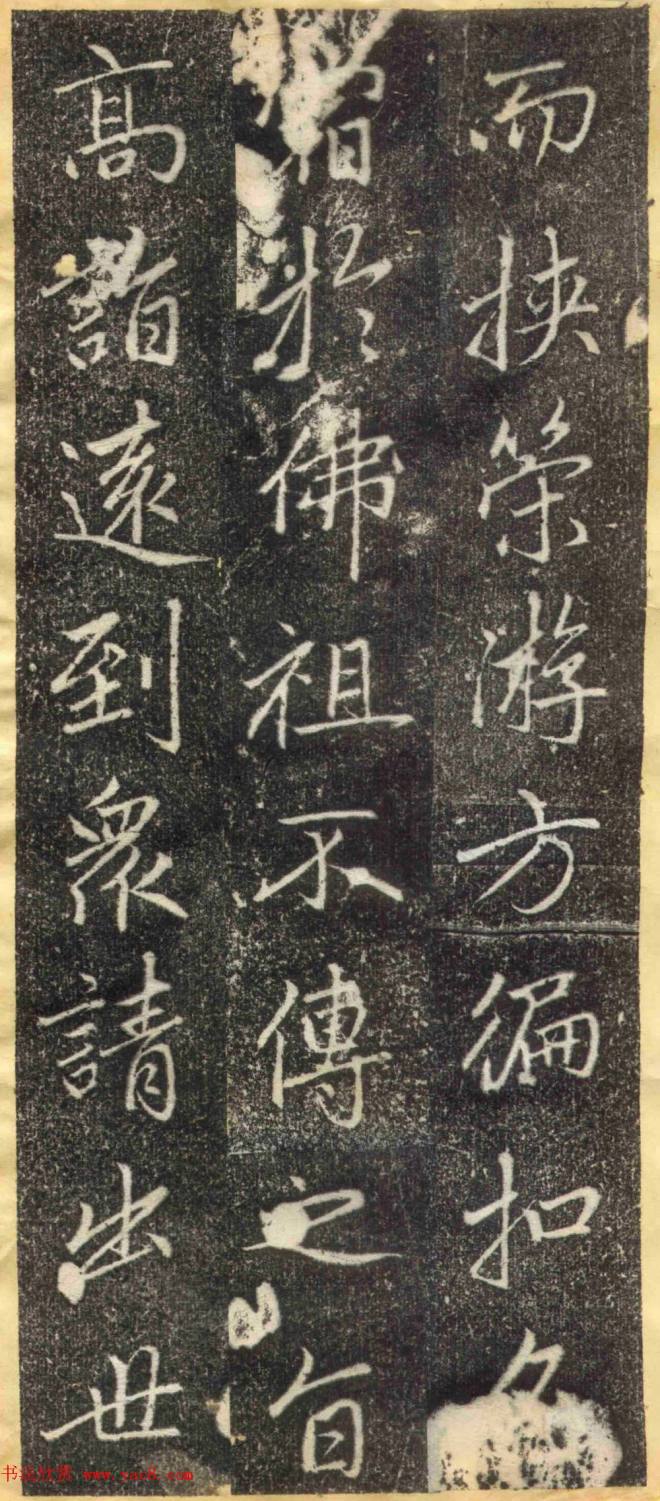 而挟策游方徧扣
於佛祖不傳之旨
高詣遠到衆請出世
书法欣赏 www.yac8.com